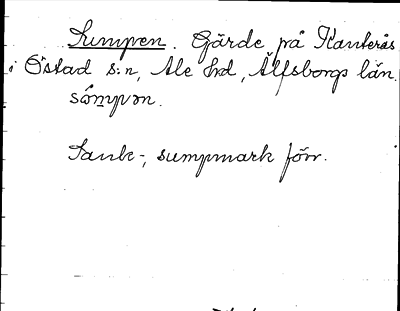 Sumpen. Gärde på Kanterås
i Östad s:n, Ale hd, Älfsborgs län.
sômpən.
Sank-, sumpmark förr.